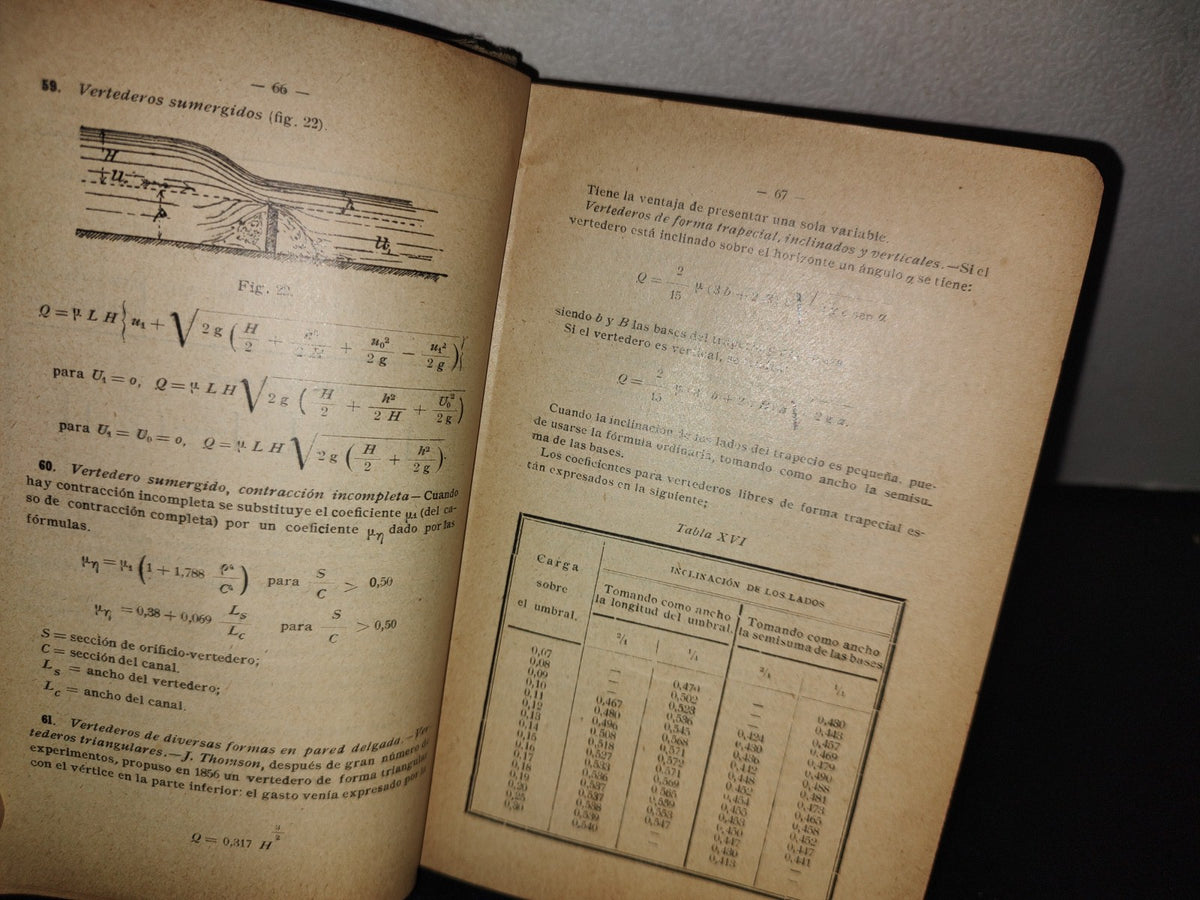 — 66 —
59. Vertederos sumergidos (fig. 22).
H
h
Fig. 22.
Q = μ L H { u₁ + √ 2 g ( H/2 + + u₀²/2 g − u₁²/2 g ) }
para U₁ = o, Q = μ L H √ 2 g ( H/2 + h²/2 H + U₀²/2 g )
para U₁ = U₀ = o, Q = μ L H √ 2 g ( H/2 + h²/2 g ).
60. Vertedero sumergido, contracción incompleta — Cuando
hay contracción incompleta se substituye el coeficiente μ₁ (del ca-
so de contracción completa) por un coeficiente μη dado por las
fórmulas.
μη = μ₁ ( 1 + 1,788 ) para S/C > 0,50
μη = 0,38 + 0,069 Lₛ/L꜀ para S/C > 0,50
S = sección de orificio-vertedero;
C = sección del canal.
Lₛ = ancho del vertedero;
L꜀ = ancho del canal.
61. Vertederos de diversas formas en pared delgada. — Ver
tederos triangulares. — J. Thomson, después de gran número de
experimentos, propuso en 1856 un vertedero de forma triangular
con el vértice en la parte inferior: el gasto venía expresado por la
Q = 0,317 H
— 67 —
Tiene la ventaja de presentar una sola variable.
Vertederos de forma trapecial, inclinados y verticales. — Si el
vertedero está inclinado sobre el horizonte un ángulo α se tiene:
Q = 2/15 μ (3 b + 2 sen α
siendo b y B las bases del
Si el vertedero es vertical,
Q = 2/15
Cuando la inclinación de los lados del trapecio es pequeña, pue-
de usarse la fórmula ordinaria, tomando como ancho la semisu-
ma de las bases.
Los coeficientes para vertederos libres de forma trapecial es-
tán expresados en la siguiente;
Tabla XVI
Carga
sobre
el umbral.
INCLINACIÓN DE LOS LADOS
Tomando como ancho
la longitud del umbral.
Tomando como ancho
la semisuma de las bases
²/₁ ¹/₁ ²/₁ ¹/₁
0,07 — 0,470 — 0,430
0,08 — 0,502 — 0,443
0,09 — 0,523 — 0,457
0,10 0,467 0,536 0,424 0,469
0,11 0,480 0,545 0,430 0,479
0,12 0,496 0,568 0,436 0,490
0,13 0,508 0,571 0,442 0,488
0,14 0,518 0,572 0,448 0,481
0,15 0,527 0,571 0,452 0,473
0,16 0,533 0,569 0,454 0,465
0,17 0,536 0,565 0,455 0,458
0,18 0,537 0,559 0,453 0,452
0,19 0,537 0,553 0,450 0,447
0,20 0,538 0,547 0,447 0,441
0,25 0,539 — 0,430 —
0,30 0,540 — 0,413 —